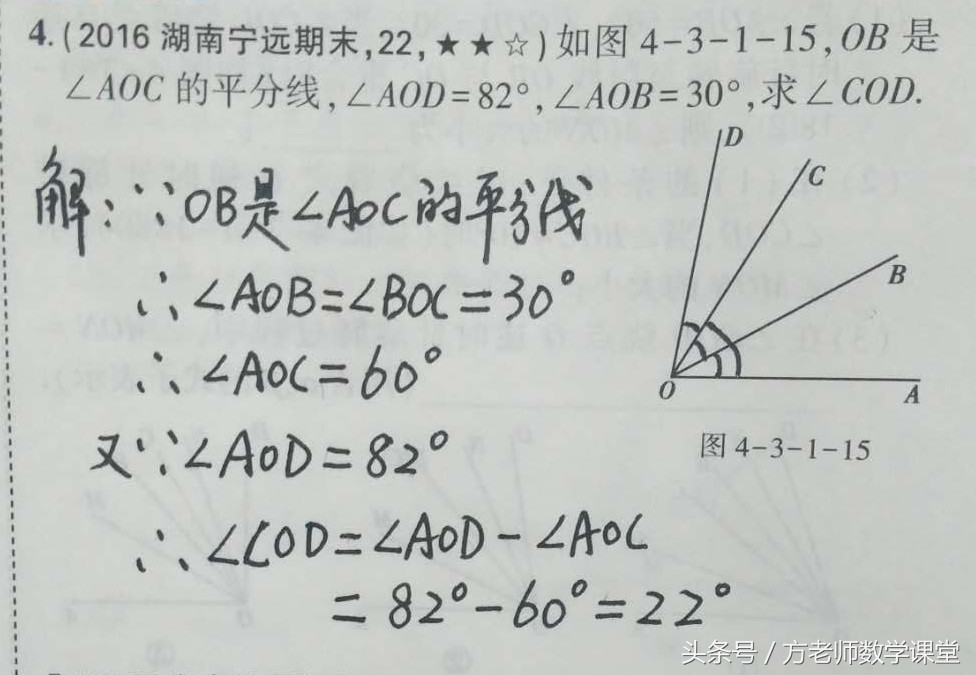 4. (2016 湖南宁远期末,22,★★☆)如图 4-3-1-15,OB 是
∠AOC 的平分线,∠AOD=82°,∠AOB=30°,求∠COD.
解:∵OB是∠AOC的平分线
∴∠AOB=∠BOC=30°
∴∠AOC=60°
又∵∠AOD=82°
∴∠COD=∠AOD-∠AOC
=82°-60°=22°
D
C
B
O
A
图 4-3-1-15
头条号 / 方老师数学课堂